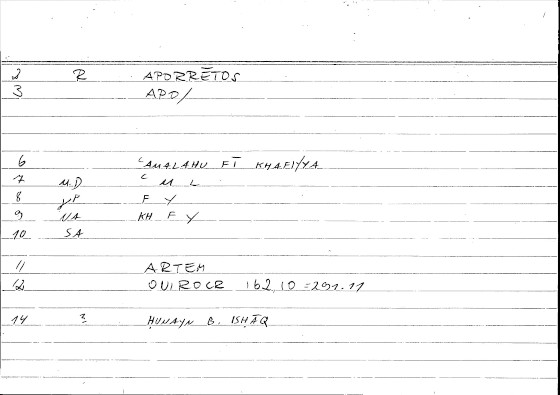 2 R APORRĒTOS
3 APO/
6 ʿAMALAHU FĪ KHAFIYYA
7 M.D ʿ M L
8 JP F Y
9 NA KH F Y
10 SA
11 ARTEM
12 OUIROCR 162,10 = 291.11
14 3 ḤUNAYN B. ISḤĀQ